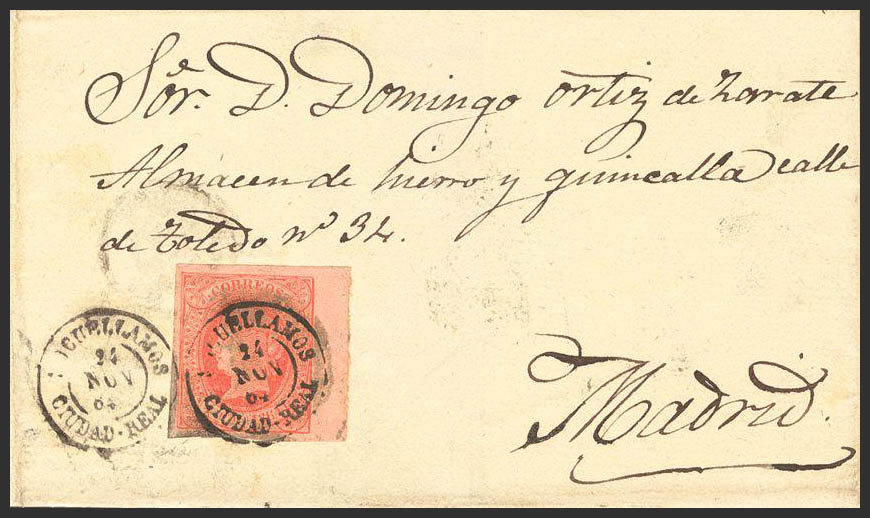 Sor. D. Domingo Ortiz de Zarate
Almacen de hierro y quincalla calle
de Toledo nº 34.
CORREOS
UELLAMOS
24
NOV
64
CIUDAD-REAL
CUELLAMOS
24
NOV
64
CIUDAD-REAL
Madrid.